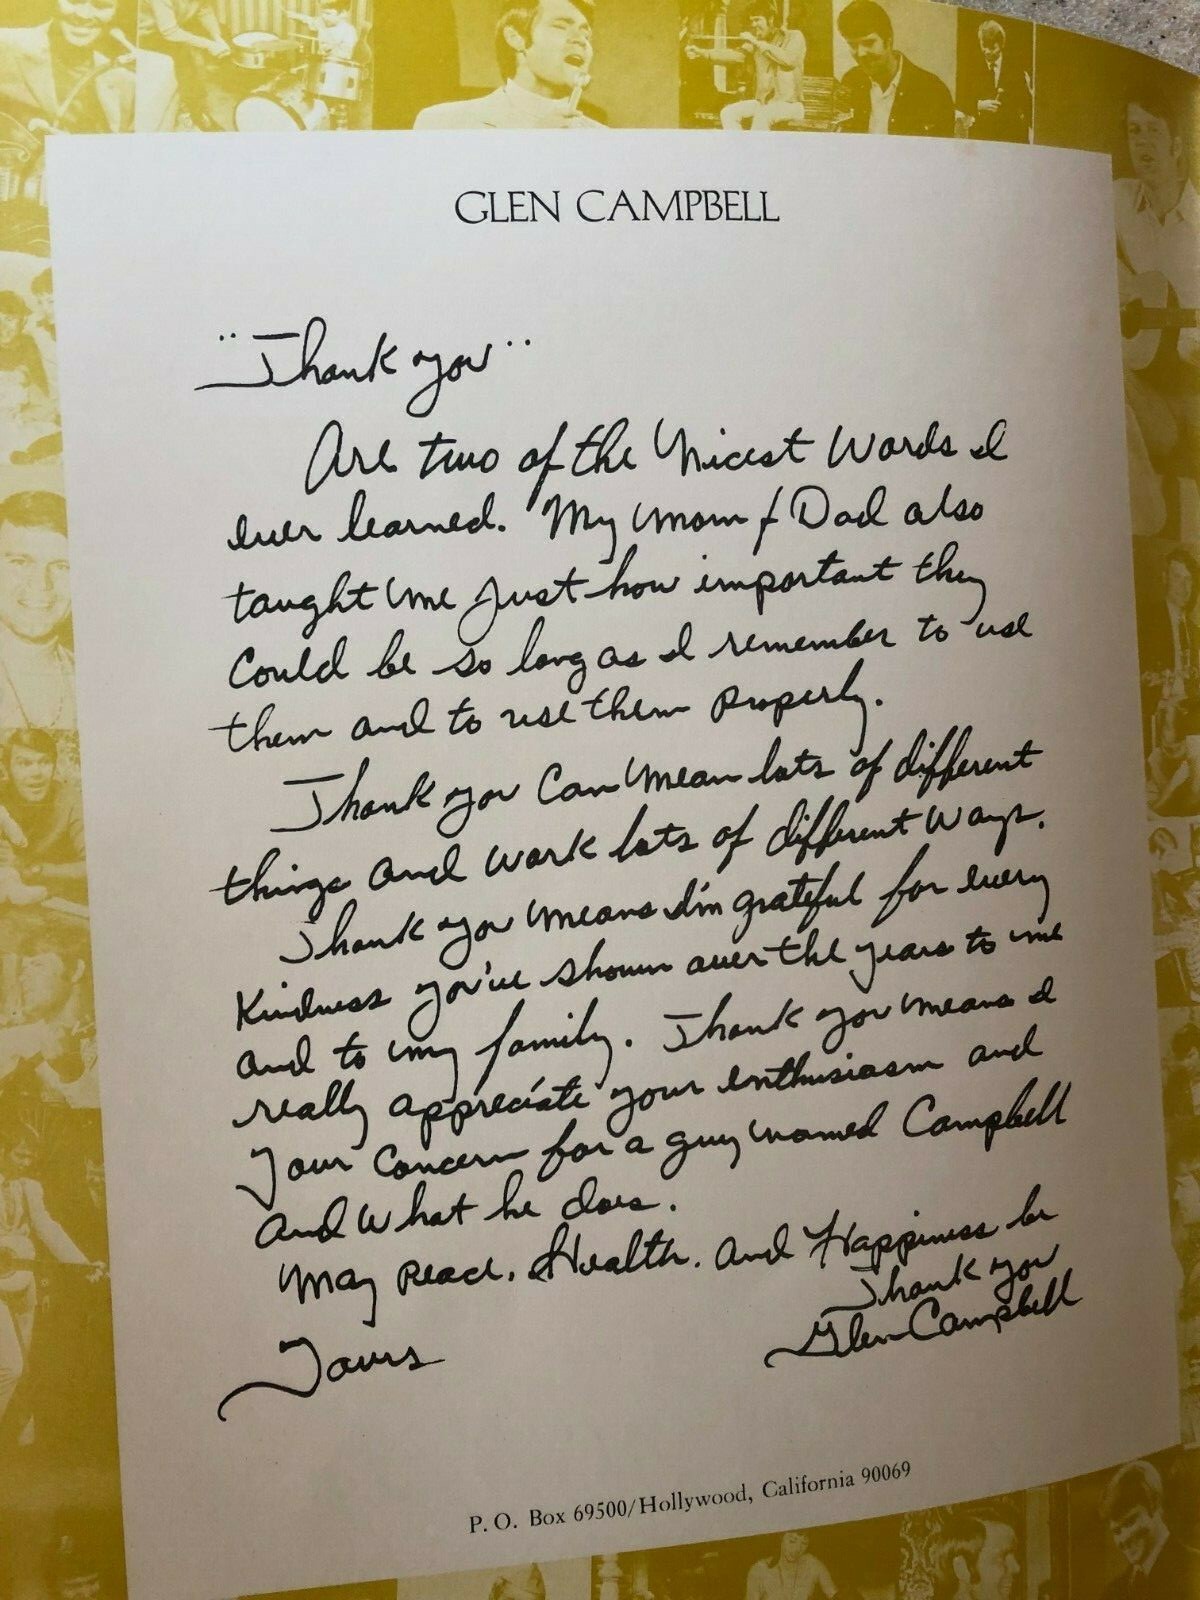 GLEN CAMPBELL
"Thank you"
Are two of the Nicest Words I
ever learned. My Mom & Dad also
taught me Just how important they
Could be so long as I remember to use
them and to use them properly.
Thank you Can Mean lots of different
things and work lots of different ways.
Thank you means I'm grateful for every
Kindness you've shown over the years to me
and to my family. Thank you means I
really appreciate your enthusiasm and
Your Concern for a guy named Campbell
and What he does.
May Peace, Health, and Happiness be
Yours
Thank you
Glen Campbell
P. O. Box 69500/Hollywood, California 90069